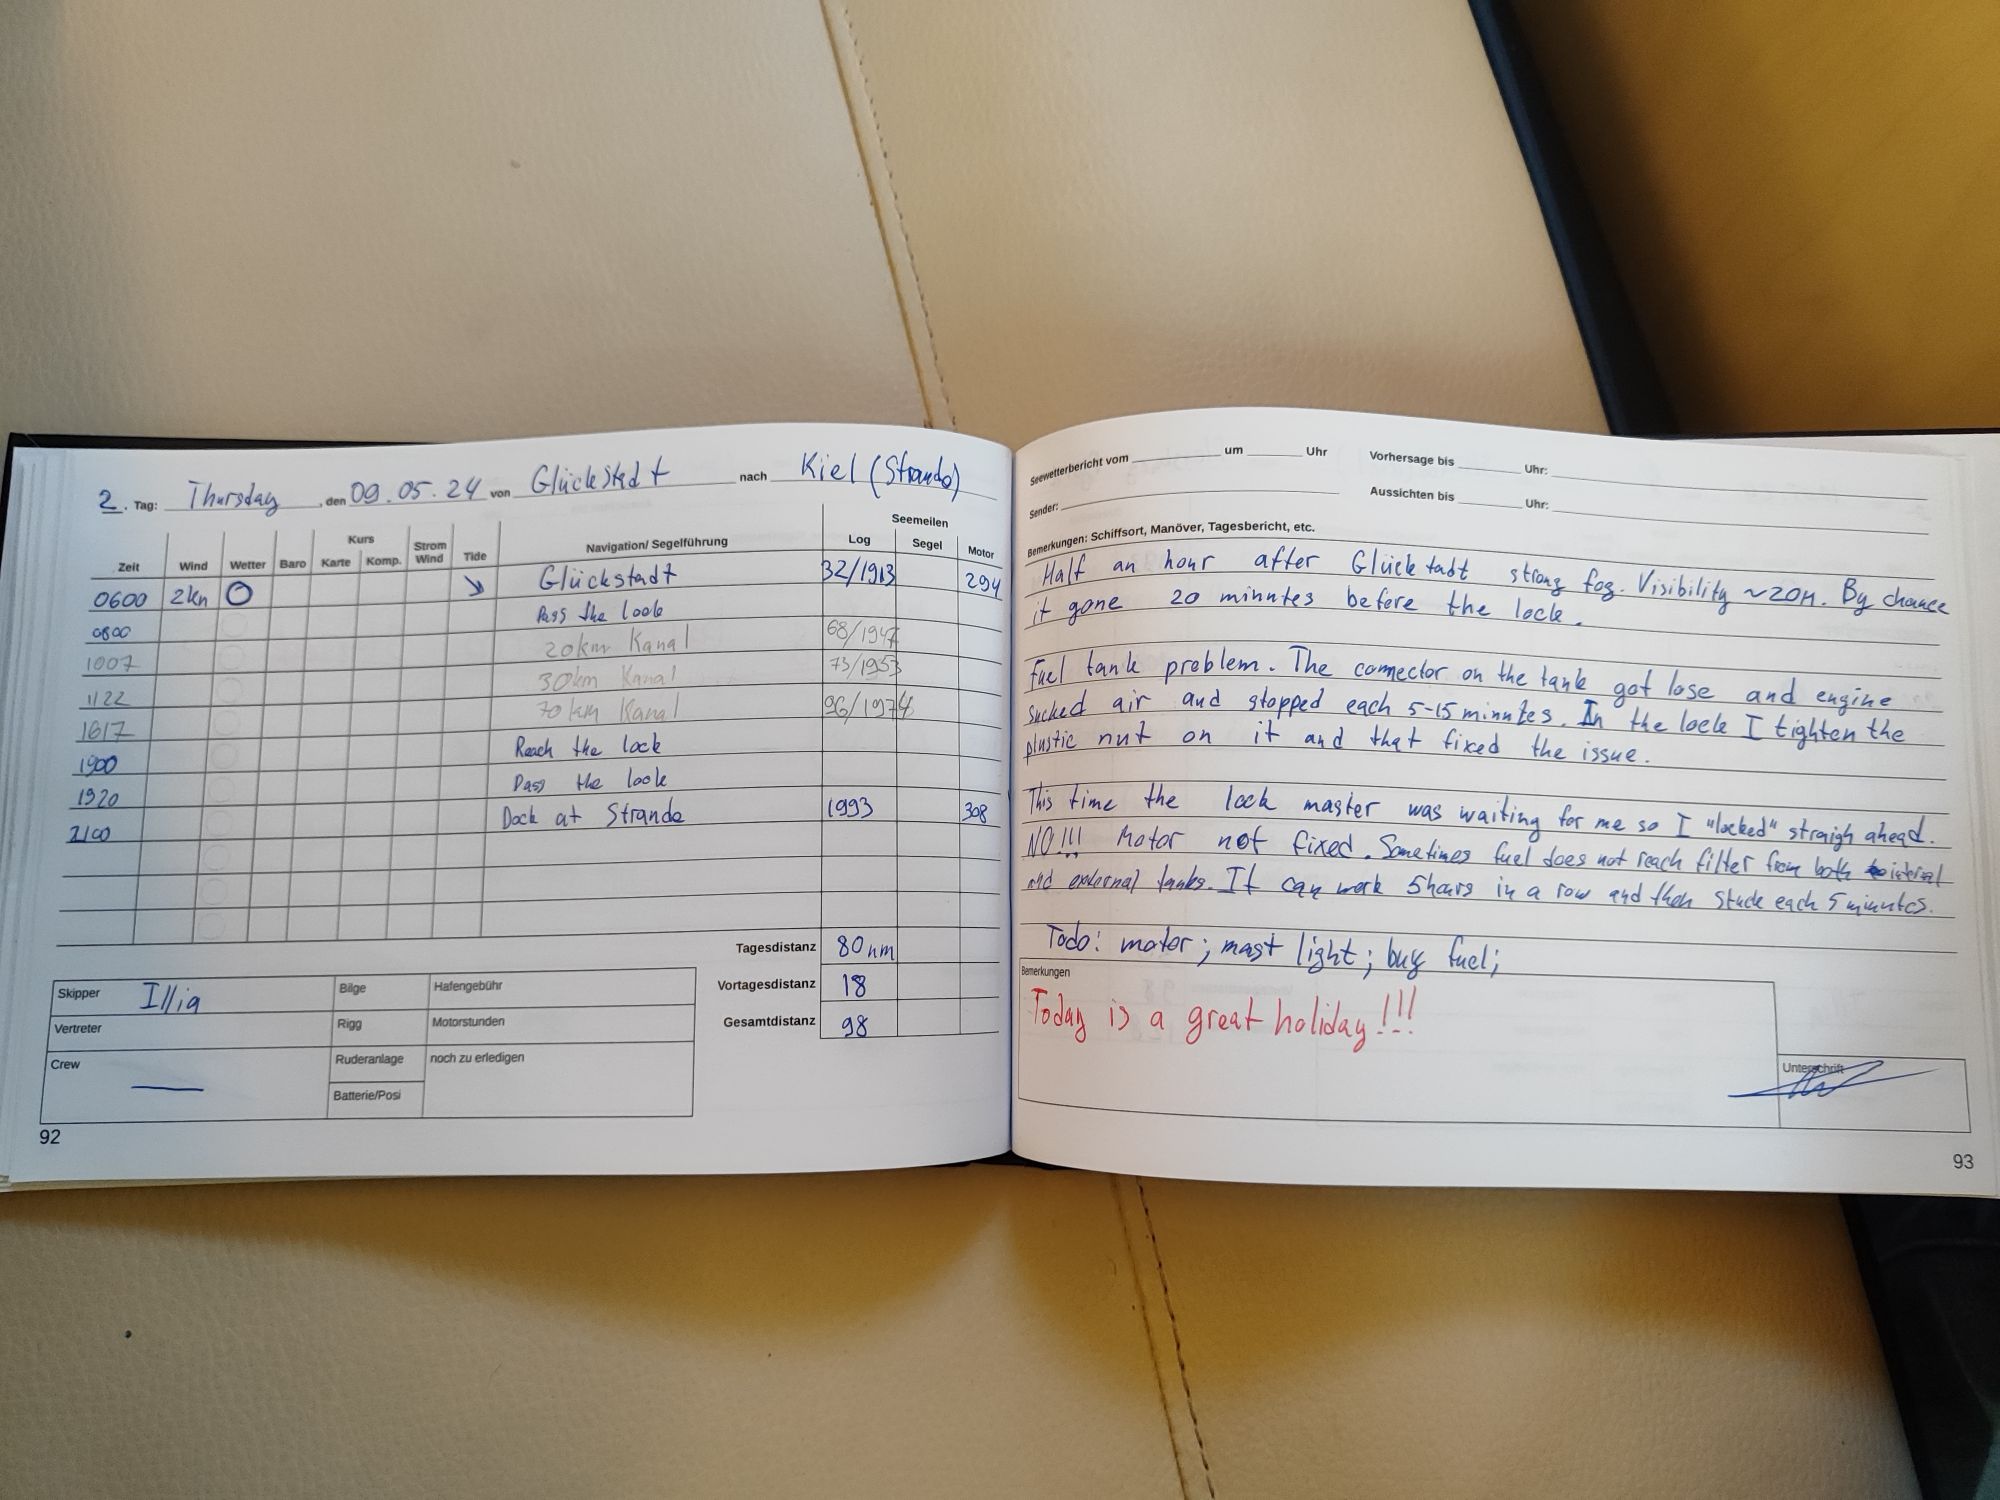 2. Tag: Thursday, den 09.05.24 von Glückstadt nach Kiel (Strande)
Seemeilen
Zeit Wind Wetter Baro Kurs Karte Komp. Strom Wind Tide Navigation/ Segelführung Log Segel Motor
0600 2kn O ↘ Glückstadt 32/1913 294
0800 Pass the lock
1007 20km Kanal 68/1947
1122 30km Kanal 73/1953
1617 70km Kanal 96/1974
1900 Reach the lock
1920 Pass the lock
2100 Dock at Strande 1993 308
Tagesdistanz 80nm
Vortagesdistanz 18
Gesamtdistanz 98
Skipper Illia Bilge Hafengebühr
Vertreter Rigg Motorstunden
Crew — Ruderanlage noch zu erledigen
Batterie/Posi
92
Seewetterbericht vom um Uhr Vorhersage bis Uhr:
Sender: Aussichten bis Uhr:
Bemerkungen: Schiffsort, Manöver, Tagesbericht, etc.
Half an hour after Glückstadt strong fog. Visibility ~20m. By chance
it gone 20 minutes before the lock.
Fuel tank problem. The connector on the tank got lose and engine
sucked air and stopped each 5-15 minutes. In the lock I tighten the
plastic nut on it and that fixed the issue.
This time the lock master was waiting for me so I "locked" straigh ahead.
NO!!! Motor not fixed. Sometimes fuel does not reach filter from both internal
and external tanks. It can work 5 hours in a row and then stuck each 5 minutes.
Todo: motor; mast light; buy fuel;
Bemerkungen
Today is a great holiday!!!
Unterschrift
93